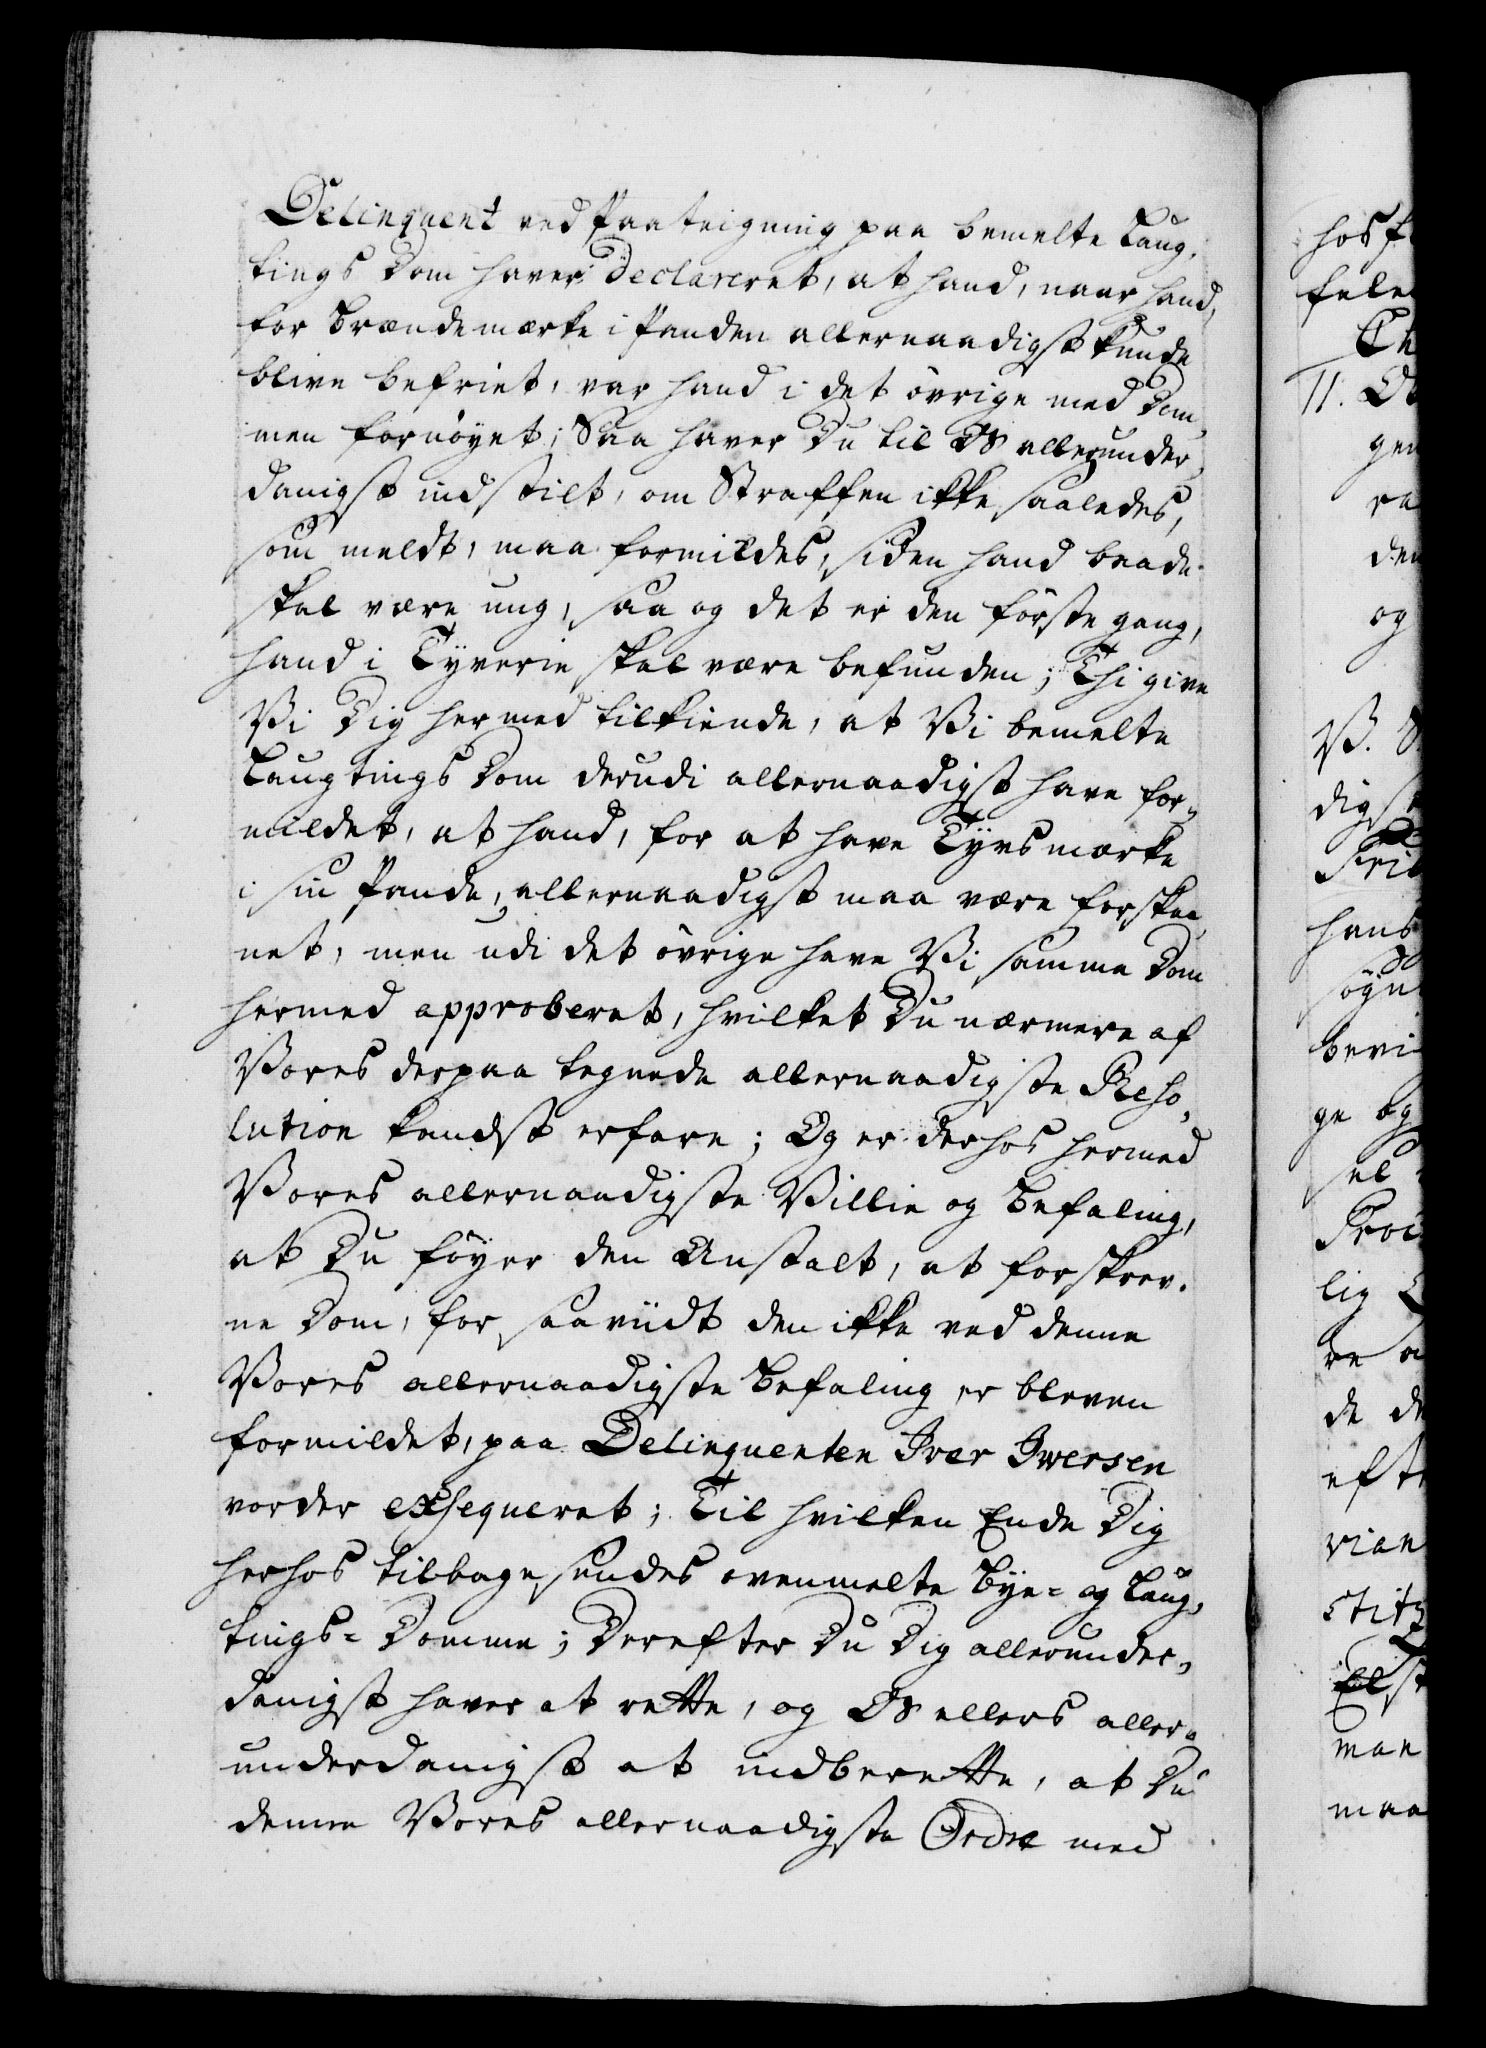 Delinquent ved Paateigning paa bemelte Laug-
tings Dom haver declareret, at hand, naar hand,
for Brændemærke i Panden allernaadigst kunde
blive befriet, var hand i det övrige med Dom-
men fornöyet; Saa haver Du til Os allerunder-
danigst indstilt, om Straffen ikke saaledes,
som meldt, maa formildes, siden hand baade
skal være ung, saa og det er den förste gang,
hand i Tyverie skal være befunden; Thi give
Vi Dig hermed tilkiende, at Vi bemelte
Laugtings Dom derudi allernaadigst have for-
mildet, at hand, for at have Tyvsmærke
i sin Pande, allernaadigst maa være forskaa-
net, men udi det övrige have Vi samme Dom
hermed approberet, hvilket Du nærmere af
Vores derpaa tegnede allernaadigste Reso-
lution kandst erfare; Og er derhos hermed
Vores allernaadigste Villie og Befaling,
at Du föyer den Anstalt, at forskrev-
ne Dom, for saaviidt den ikke ved denne
Vores allernaadigste Befaling er bleven
formildet, paa Delinquenten Iver Iversen
vorder exsequeret; Til hvilken Ende Dig
herhos tilbage sendes ovenmelte Bye- og Laug-
tings- Domme; Derefter Du Dig allerunder-
danigst haver at rette, og Os ellers aller-
underdanigst at indberette, at Du
denne Vores allernaadigste Ordre med
hos
Th
11.
gen
ra
den
og
V.
digst
hans
ge og
lig
de
rian
man
maa